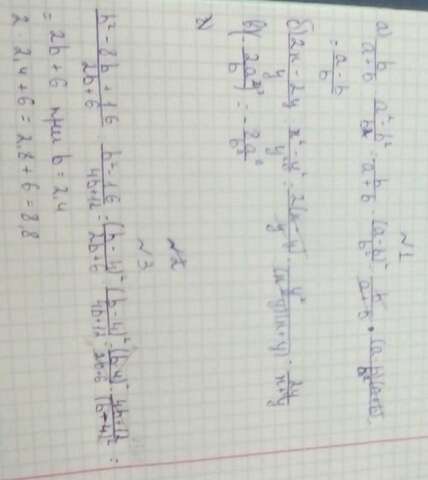 №1
а) b/(a+b) · (a²-b²)/b² = b/(a+b) · (a-b)²/b² = b/(a+b) · (a-b)(a+b)/b²
= (a-b)/b
б) (2x-2y)/y : (x²-y²)/y² = 2(x-y)/y · y²/(x-y)(x+y) = 2y/(x+y)
в) (-2a²/b) = -2a²/b²
№2
№3
(b²-8b+16)/(2b+6) : (b²-16)/(4b+12) = (b-4)²/(2b+6) : (b-4)²/(4b+12) = (b-4)²/(2b+6) · (4b+12)/(b-4)² =
= 2b+6 при b=2,4
2·2,4+6=2,8+6=8,8